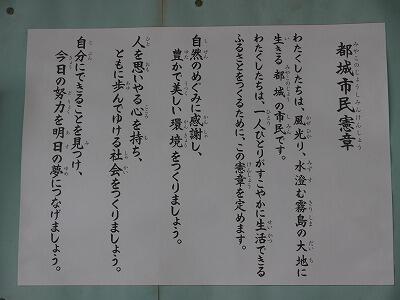 都城市民憲章
わたくしたちは、風光り、水澄む霧島の大地に
生きる 都城の市民です。
わたくしたちは、一人ひとりがすこやかに生活できる
ふるさとをつくるために、この憲章を定めます。
自然のめぐみに感謝し、
豊かで美しい環境をつくりましょう。
人を思いやる心を持ち、
ともに歩んでゆける社会をつくりましょう。
自分にできることを見つけ、
今日の努力を明日の夢につなげましょう。